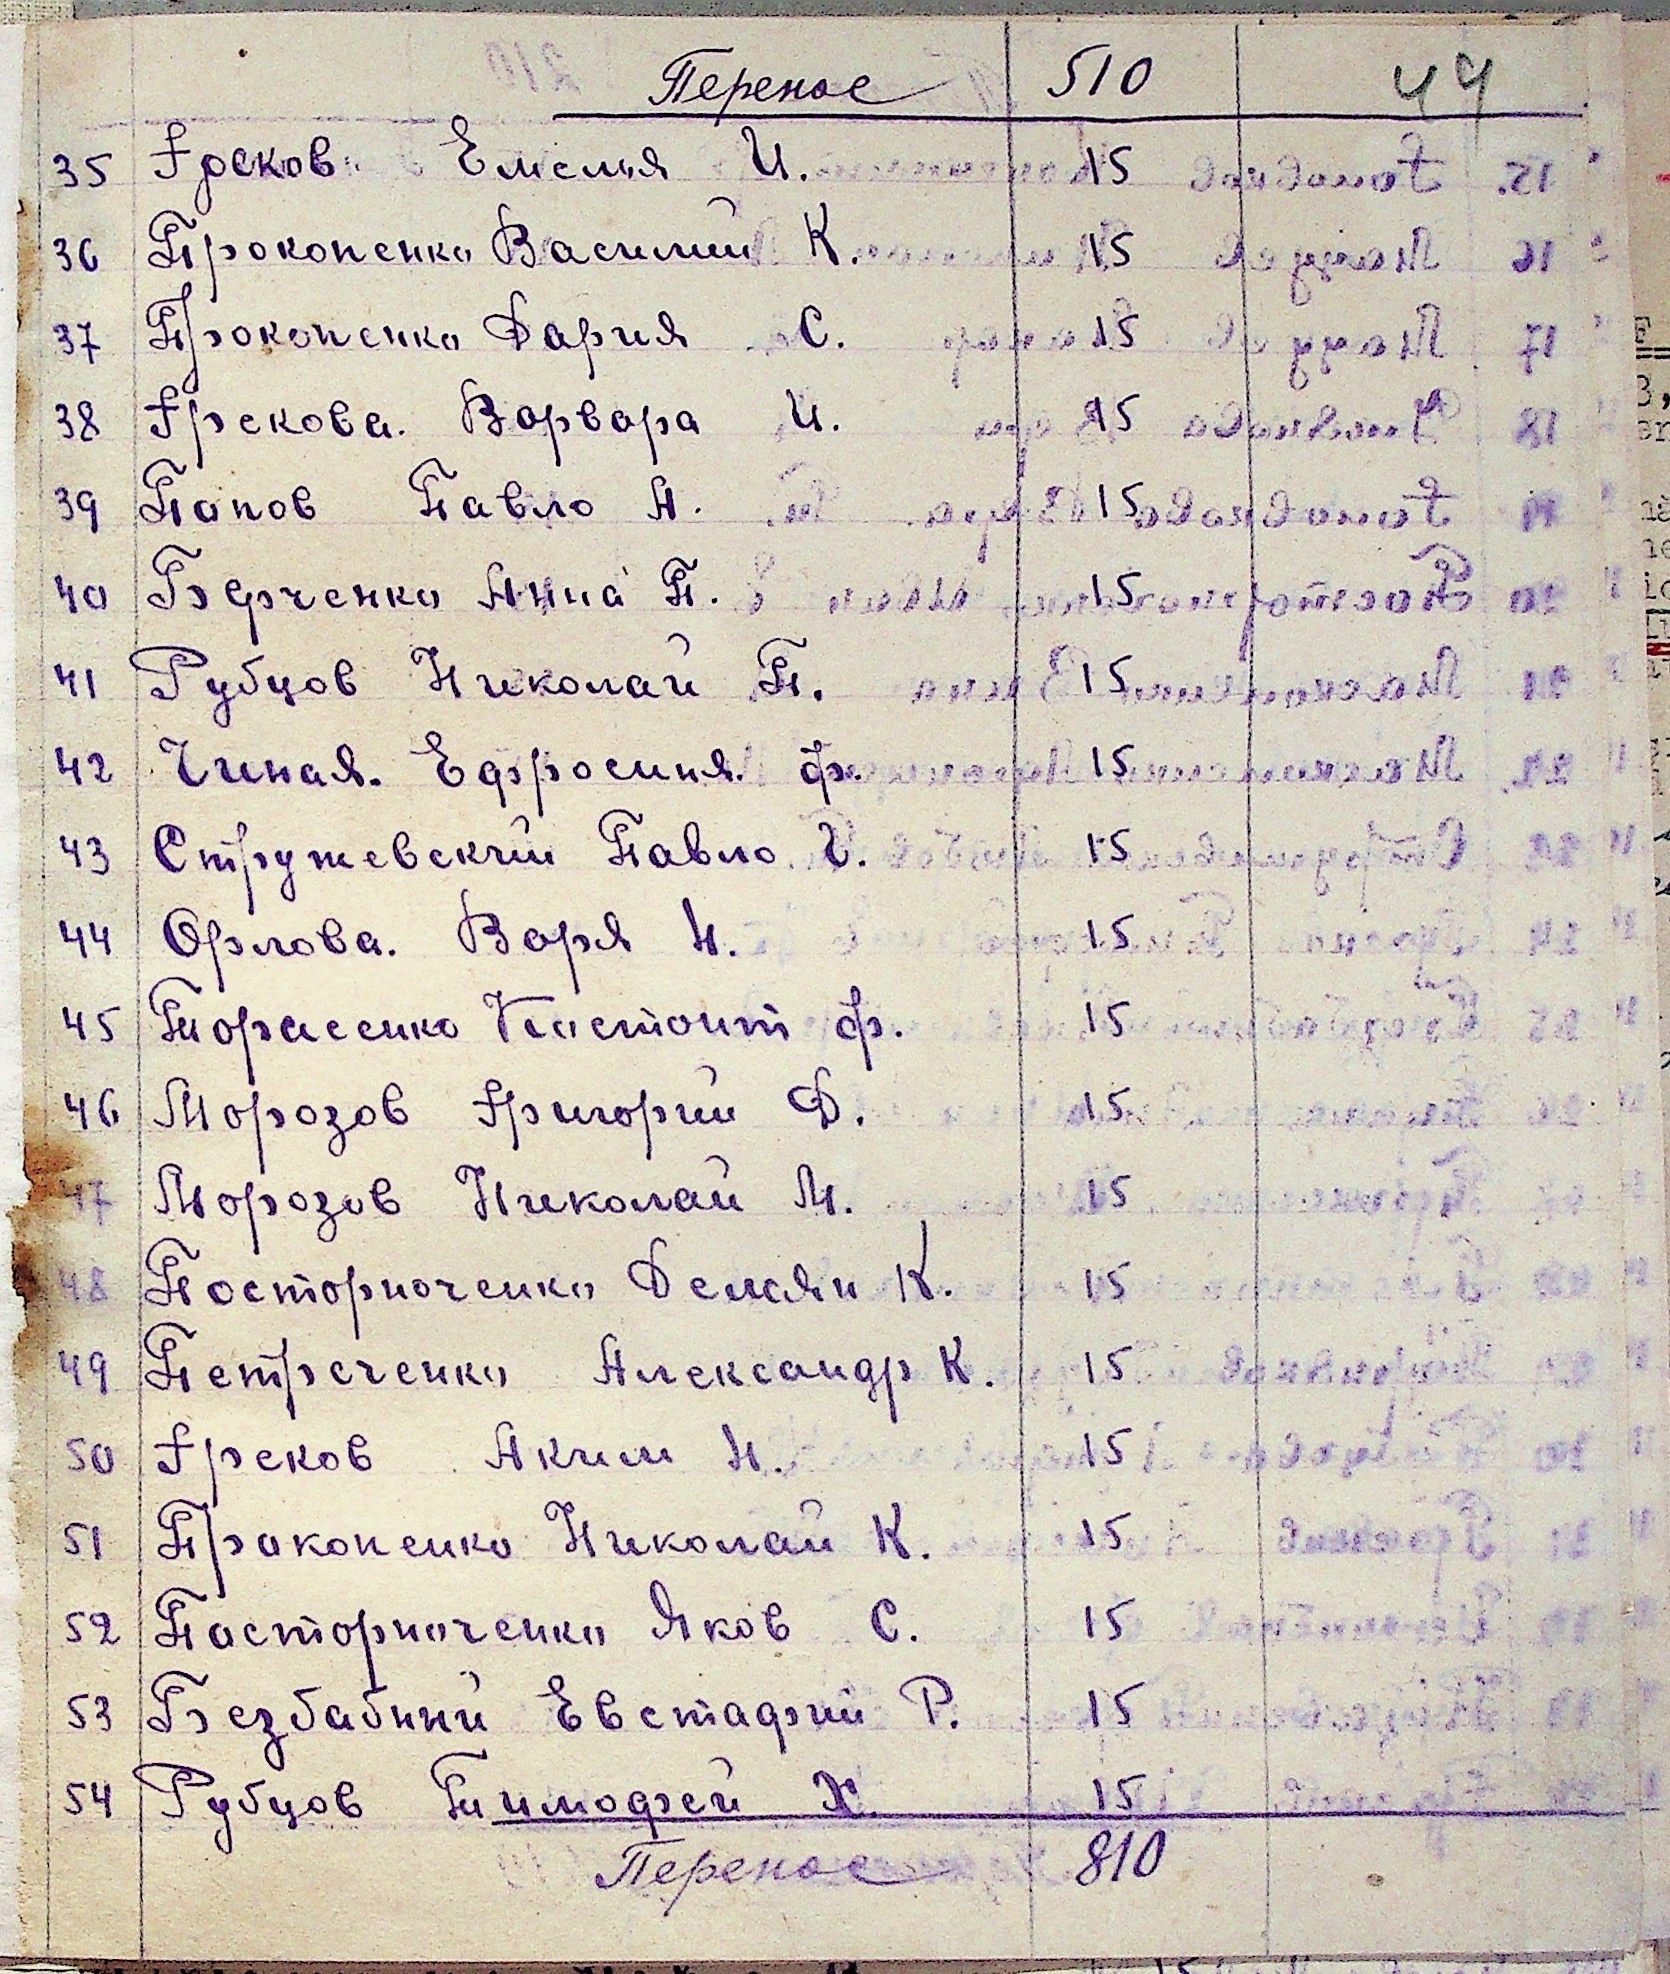 Перенос 510 44
35 Греков Емелья И. 15
36 Прокопенко Василий К. 15
37 Прокопенко Дария С. 15
38 Грекова. Варвара И. 15
39 Попов Павло А. 15
40 Берченко Анна П. 15
41 Рубцов Николай П. 15
42 Чиная. Ефросиня. Ф. 15
43 Стружевский Павло Г. 15
44 Орлова. Варя Н. 15
45 Тарасенко Ф. 15
46 Морозов Григорий Д. 15
47 Морозов Николай М. 15
48 Посторноченко Демьян К. 15
49 Петреченко Александр К. 15
50 Греков Аким Н. 15
51 Пракопенко Николай К. 15
52 Посторноченко Яков С. 15
53 Безбабний Евстафий Р. 15
54 Рубцов Тимофей Х. 15
Перенос 810